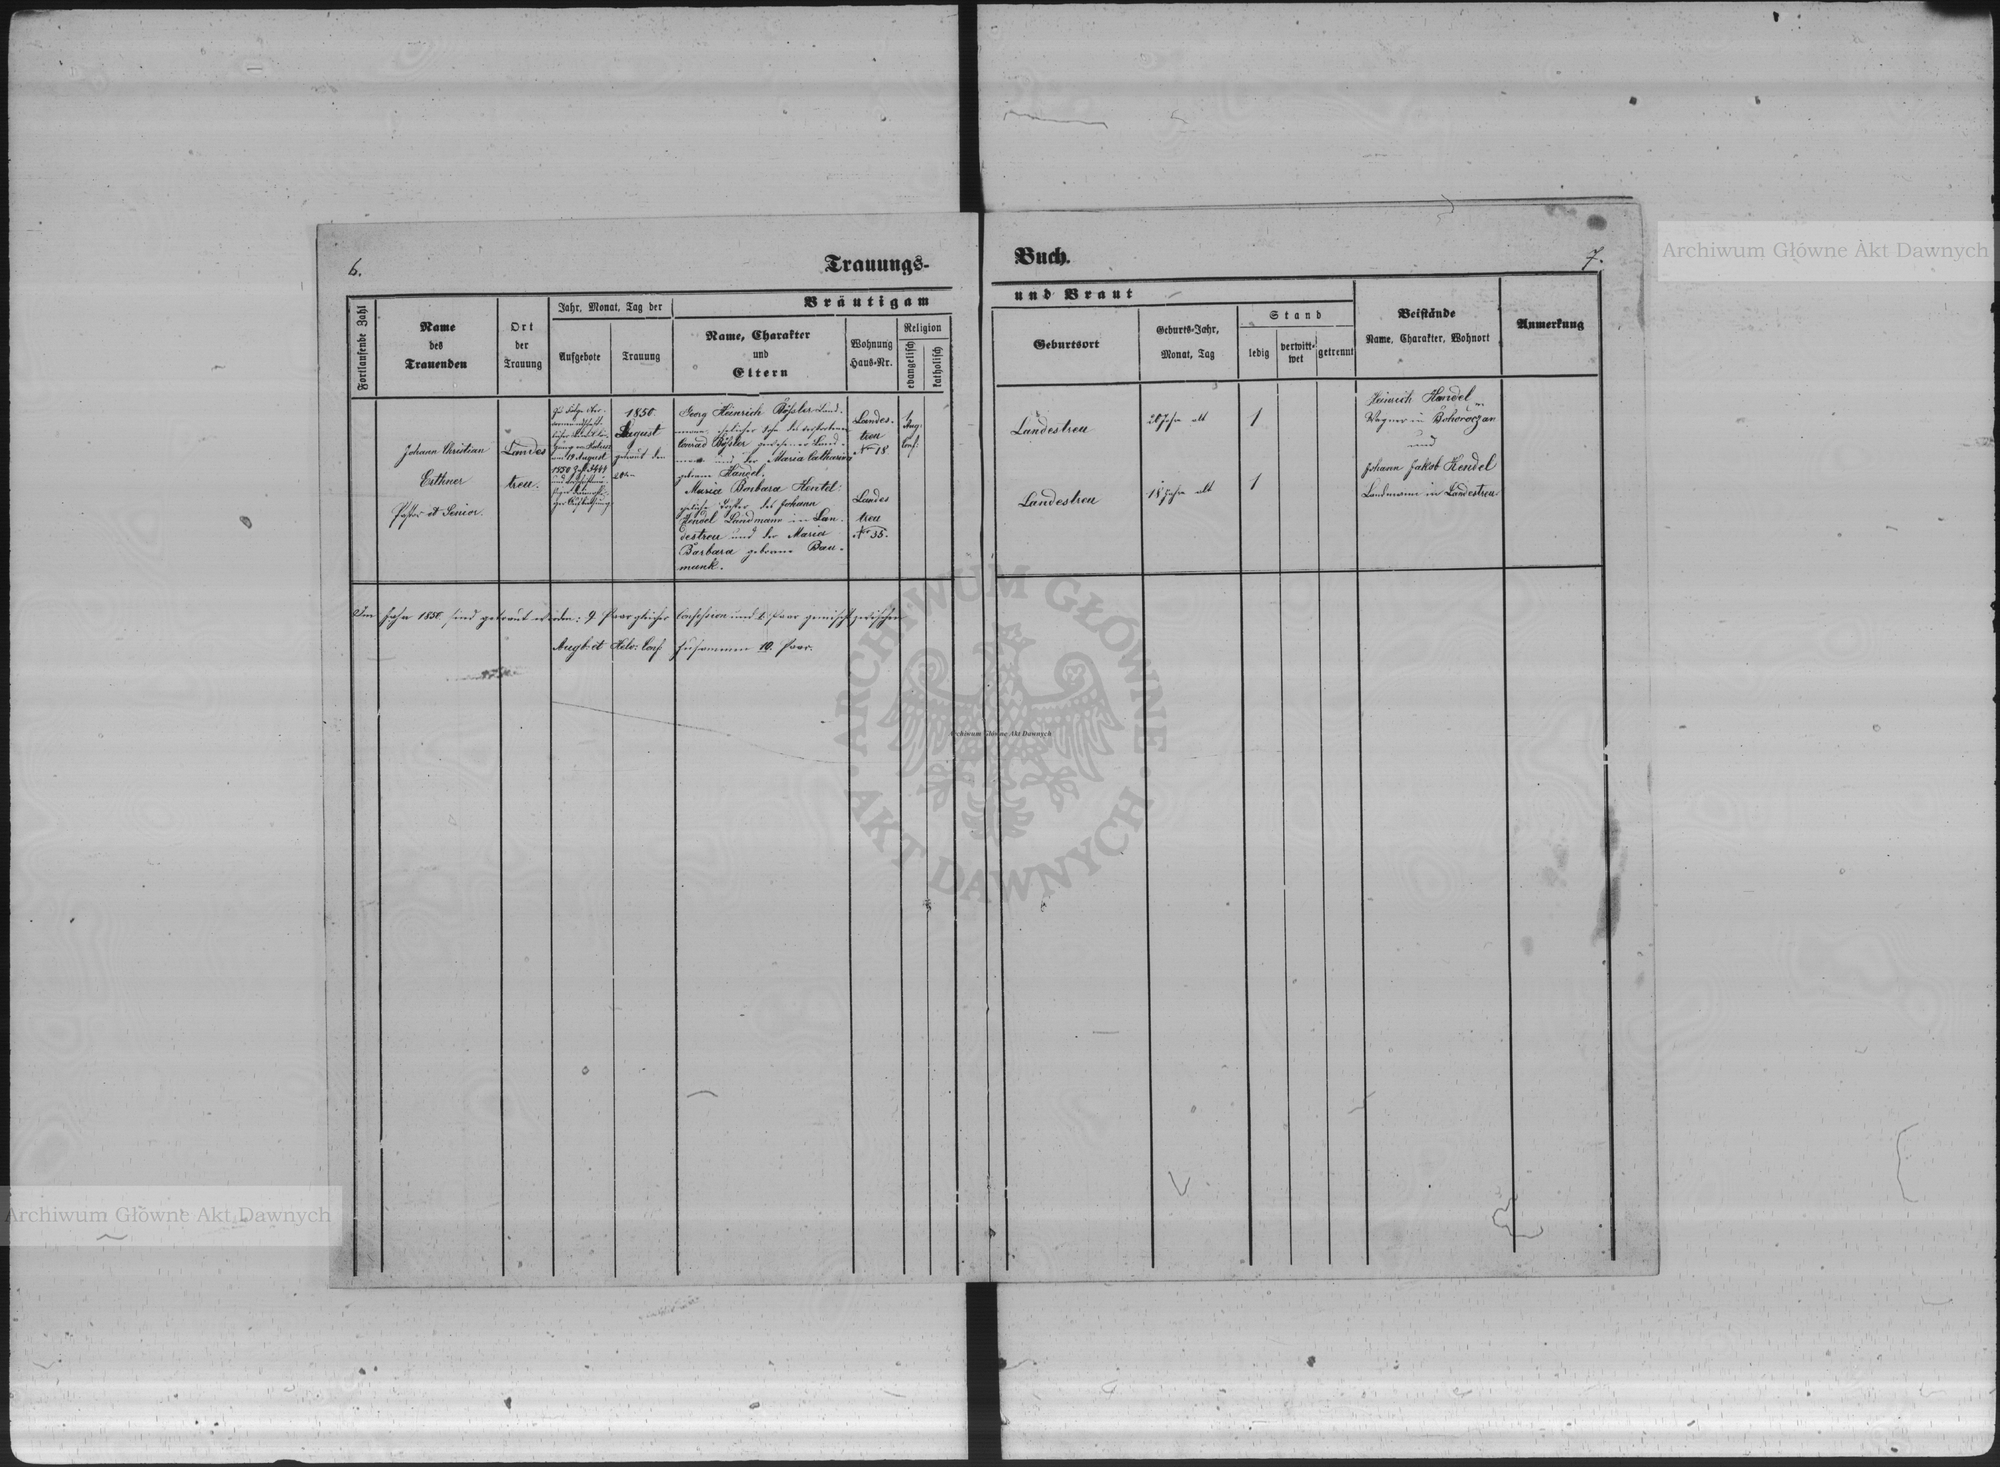 6.
Trauungs-
Buch.
7.
Archiwum Główne Akt Dawnych
Fortlaufende Zahl
Name
des
Trauenden
Ort
der
Trauung
Jahr, Monat, Tag der
Aufgebote
Trauung
Bräutigam
Name, Charakter
und
Eltern
Wohnung
Haus-Nr.
Religion
evangelisch
katholisch
und Braut
Geburtsort
Geburts-Jahr,
Monat, Tag
Stand
ledig
verwitt-
wet
getrennt
Beistände
Name, Charakter, Wohnort
Anmerkung
Johann Christian
Pastor et Senior.
Landes
treu.
zu Folge
am 19 August
1850
1850.
August
getraut den
Georg Heinrich Land-
mann, ehelicher Sohn des verstorbenen
Conrad gewesener Land-
mann und der Maria Catharina
geborne Handel.
Maria Barbara Hentel:
eheliche Tochter des Johann
Hendel Landmann in Lan-
destreu und der Maria
Barbara geborne Bau-
munk.
Landes-
treu
Nro 18
Landes
treu
Nro 35.
1
Aug:
Conf:
Landestreu
20 Jahr alt
1
Landestreu
18 Jahr alt
1
Heinrich Handel
Wagner in Bohorodczan
und
Johann Jakob Hendel
Landmann in Landestreu
Im Jahr 1850. sind getraut worden: 9 Paar gleicher Confession und 1 Paar gemischt zwischen
Augb: et Helv: Conf: zusammen 10. Paar.
ARCHIWUM GŁÓWNE
AKT DAWNYCH
Archiwum Główne Akt Dawnych
Archiwum Główne Akt Dawnych